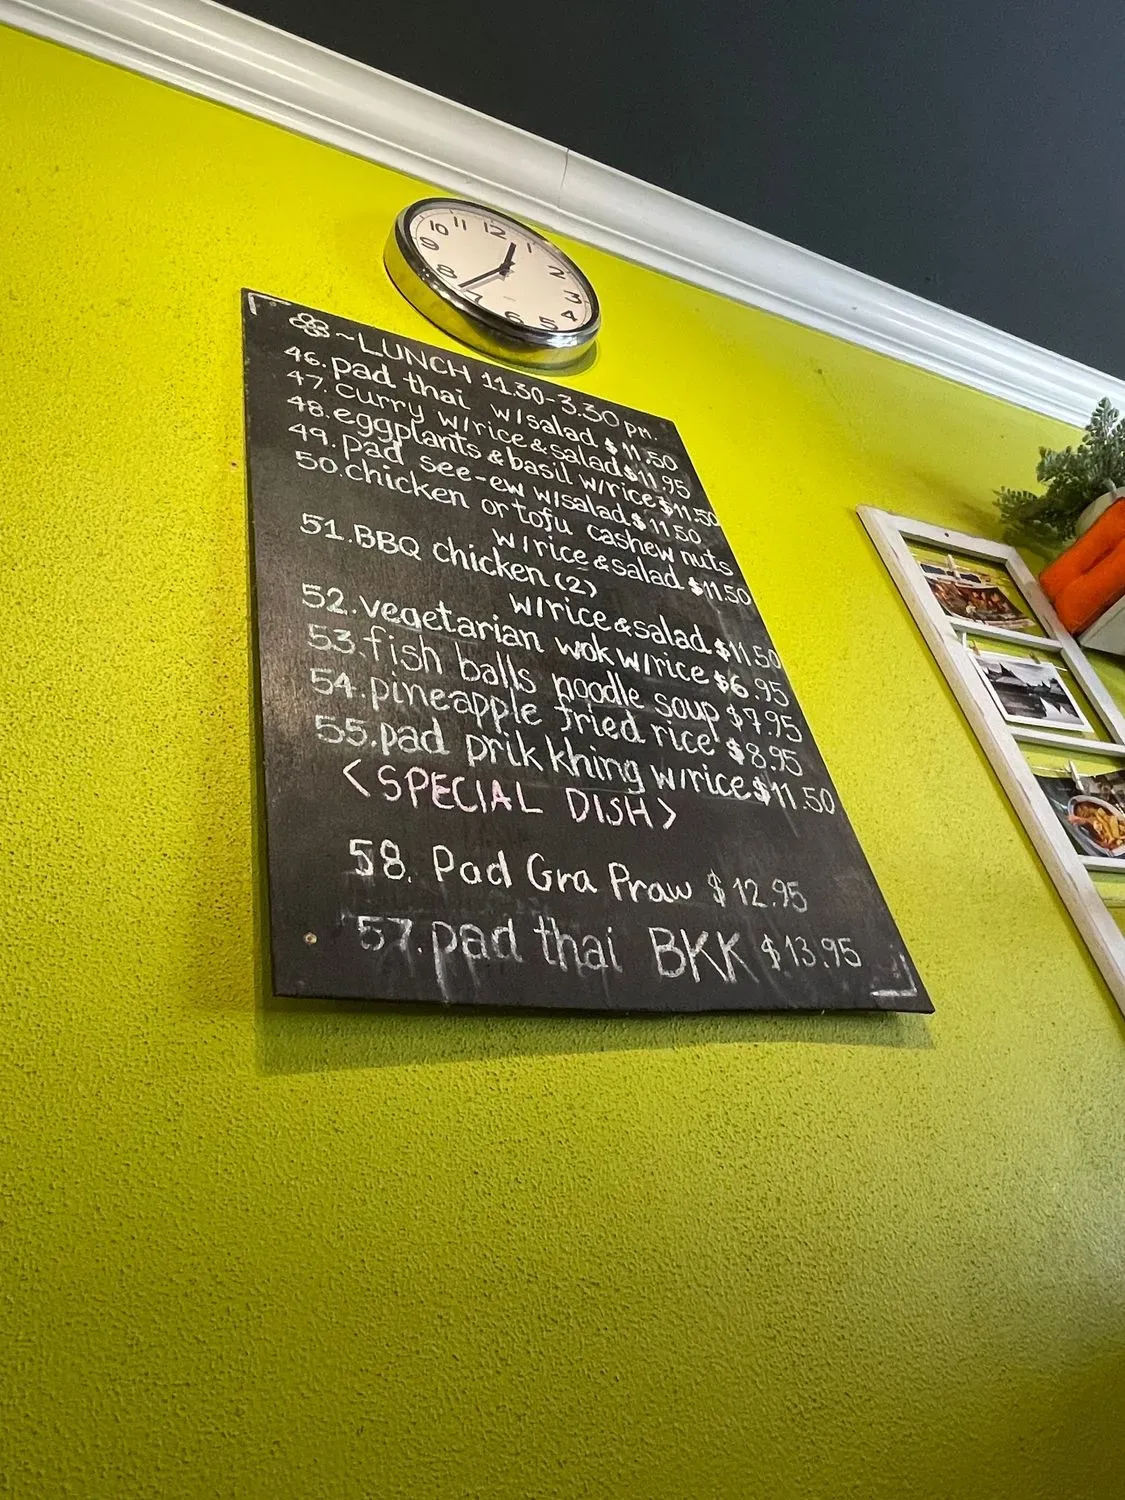 12
1
2
3
4
5
6
7
8
9
10
11
~LUNCH 11.30-3.30 PM.
46. pad thai w/salad $11.50
47. curry w/rice & salad $11.95
48. eggplants & basil w/rice $11.50
49. pad see-ew w/salad $11.50
50. chicken or tofu cashew nuts
w/rice & salad $11.50
51. BBQ chicken (2)
w/rice & salad $11.50
52. vegetarian wok w/rice $6.95
53. fish balls noodle soup $7.95
54. pineapple fried rice $8.95
55. pad prik khing w/rice $11.50
<SPECIAL DISH>
58. Pad Gra Praw $12.95
57. pad thai BKK $13.95